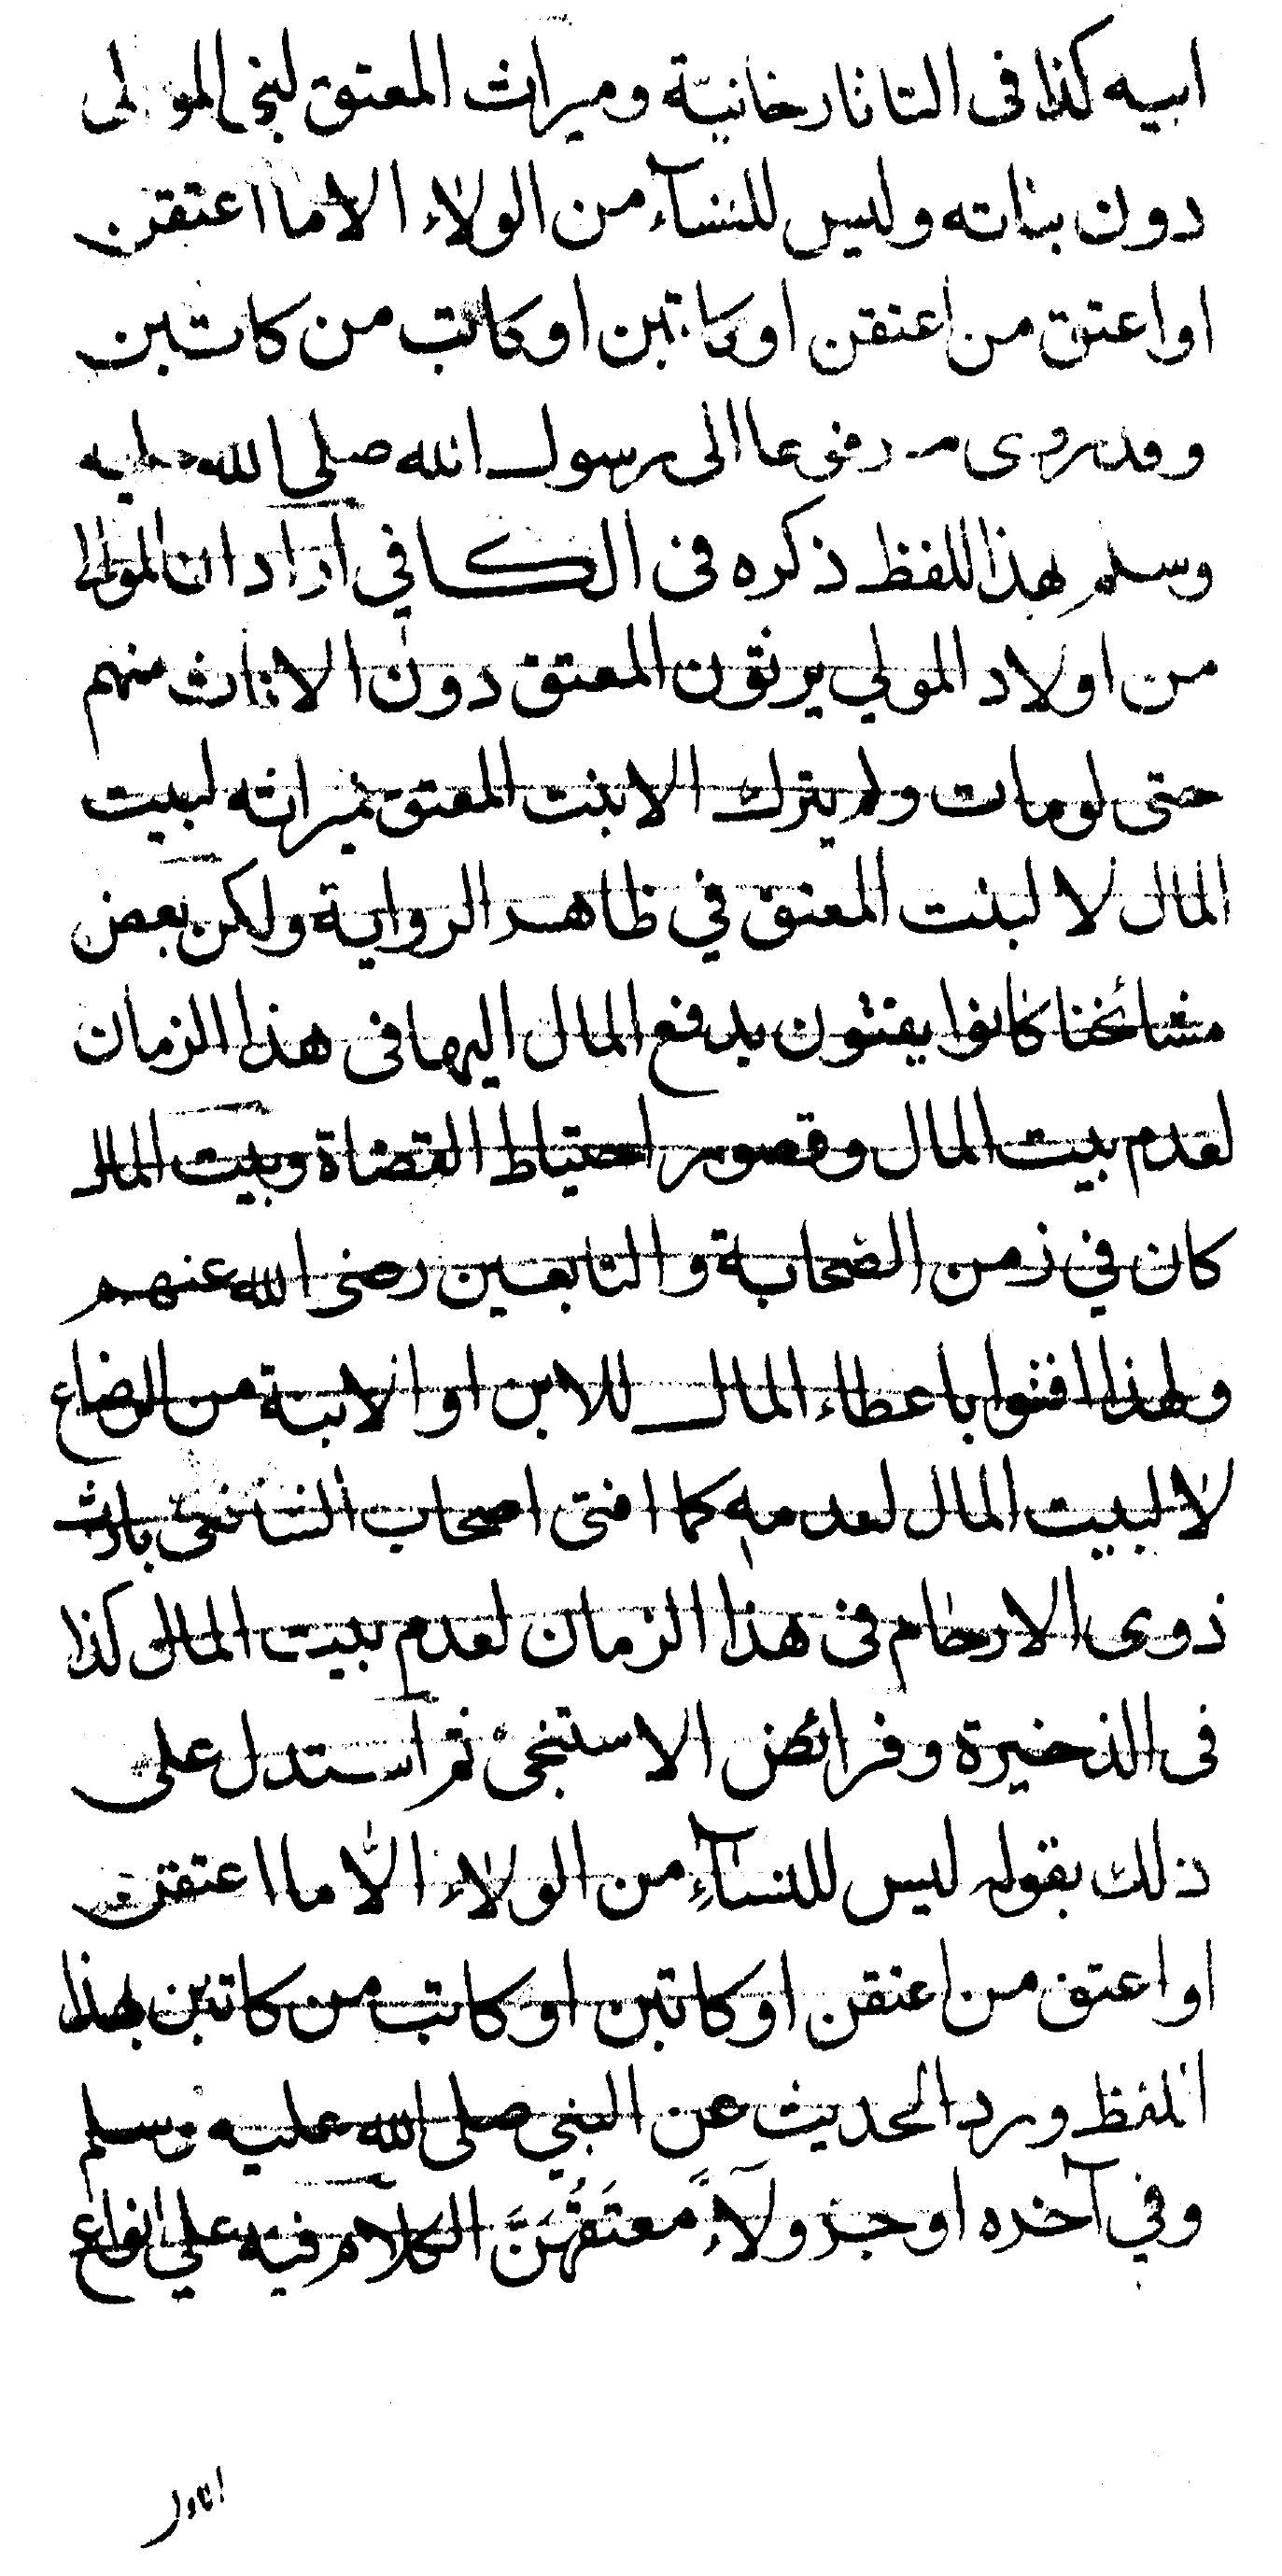 ابيه كذا فى التاتارخانيّة وميراث المعتق لبني المولى
دون بناته وليس للنسآء من الولاء الا ما اعتقن
او اعتق من اعتقن او كاتبن او كاتب من كاتبن
وقد روى مرفوعا الى رسول الله صلى الله عليه
وسلم بهذا اللفظ ذكره فى الكافي اراد ان المولى
من اولاد المولي يرثون المعتق دون الاناث منهم
حتى لو مات ولم يترك الا بنت المعتق فميراثه لبيت
المال لا لبنت المعتق في ظاهر الرواية ولكن بعض
مشائخنا كانوا يفتون بدفع المال اليها فى هذا الزمان
لعدم بيت المال وقصور احتياط القضاة وبيت المال
كان في زمن الصحابة والتابعين رضى الله عنهم
ولهذا افتوا باعطاء المال للابن او الابنة من الرضاع
لا لبيت المال لعدمه كما افتى اصحاب الشافعى بارث
ذوى الارحام فى هذا الزمان لعدم بيت المال كذا
فى الذخيرة وفرائض الاستيجى ثم استدل على
ذلك بقوله ليس للنسآءِ من الولاء الّا ما اعتقن
او اعتق من اعتقن او كاتبن او كاتب من كاتبن بهذا
اللفظ ورد الحديث عن النبي صلى الله عليه وسلم
وفي آخره او جر ولآءً معتَقُهُنَّ الكلام فيه علي انواع